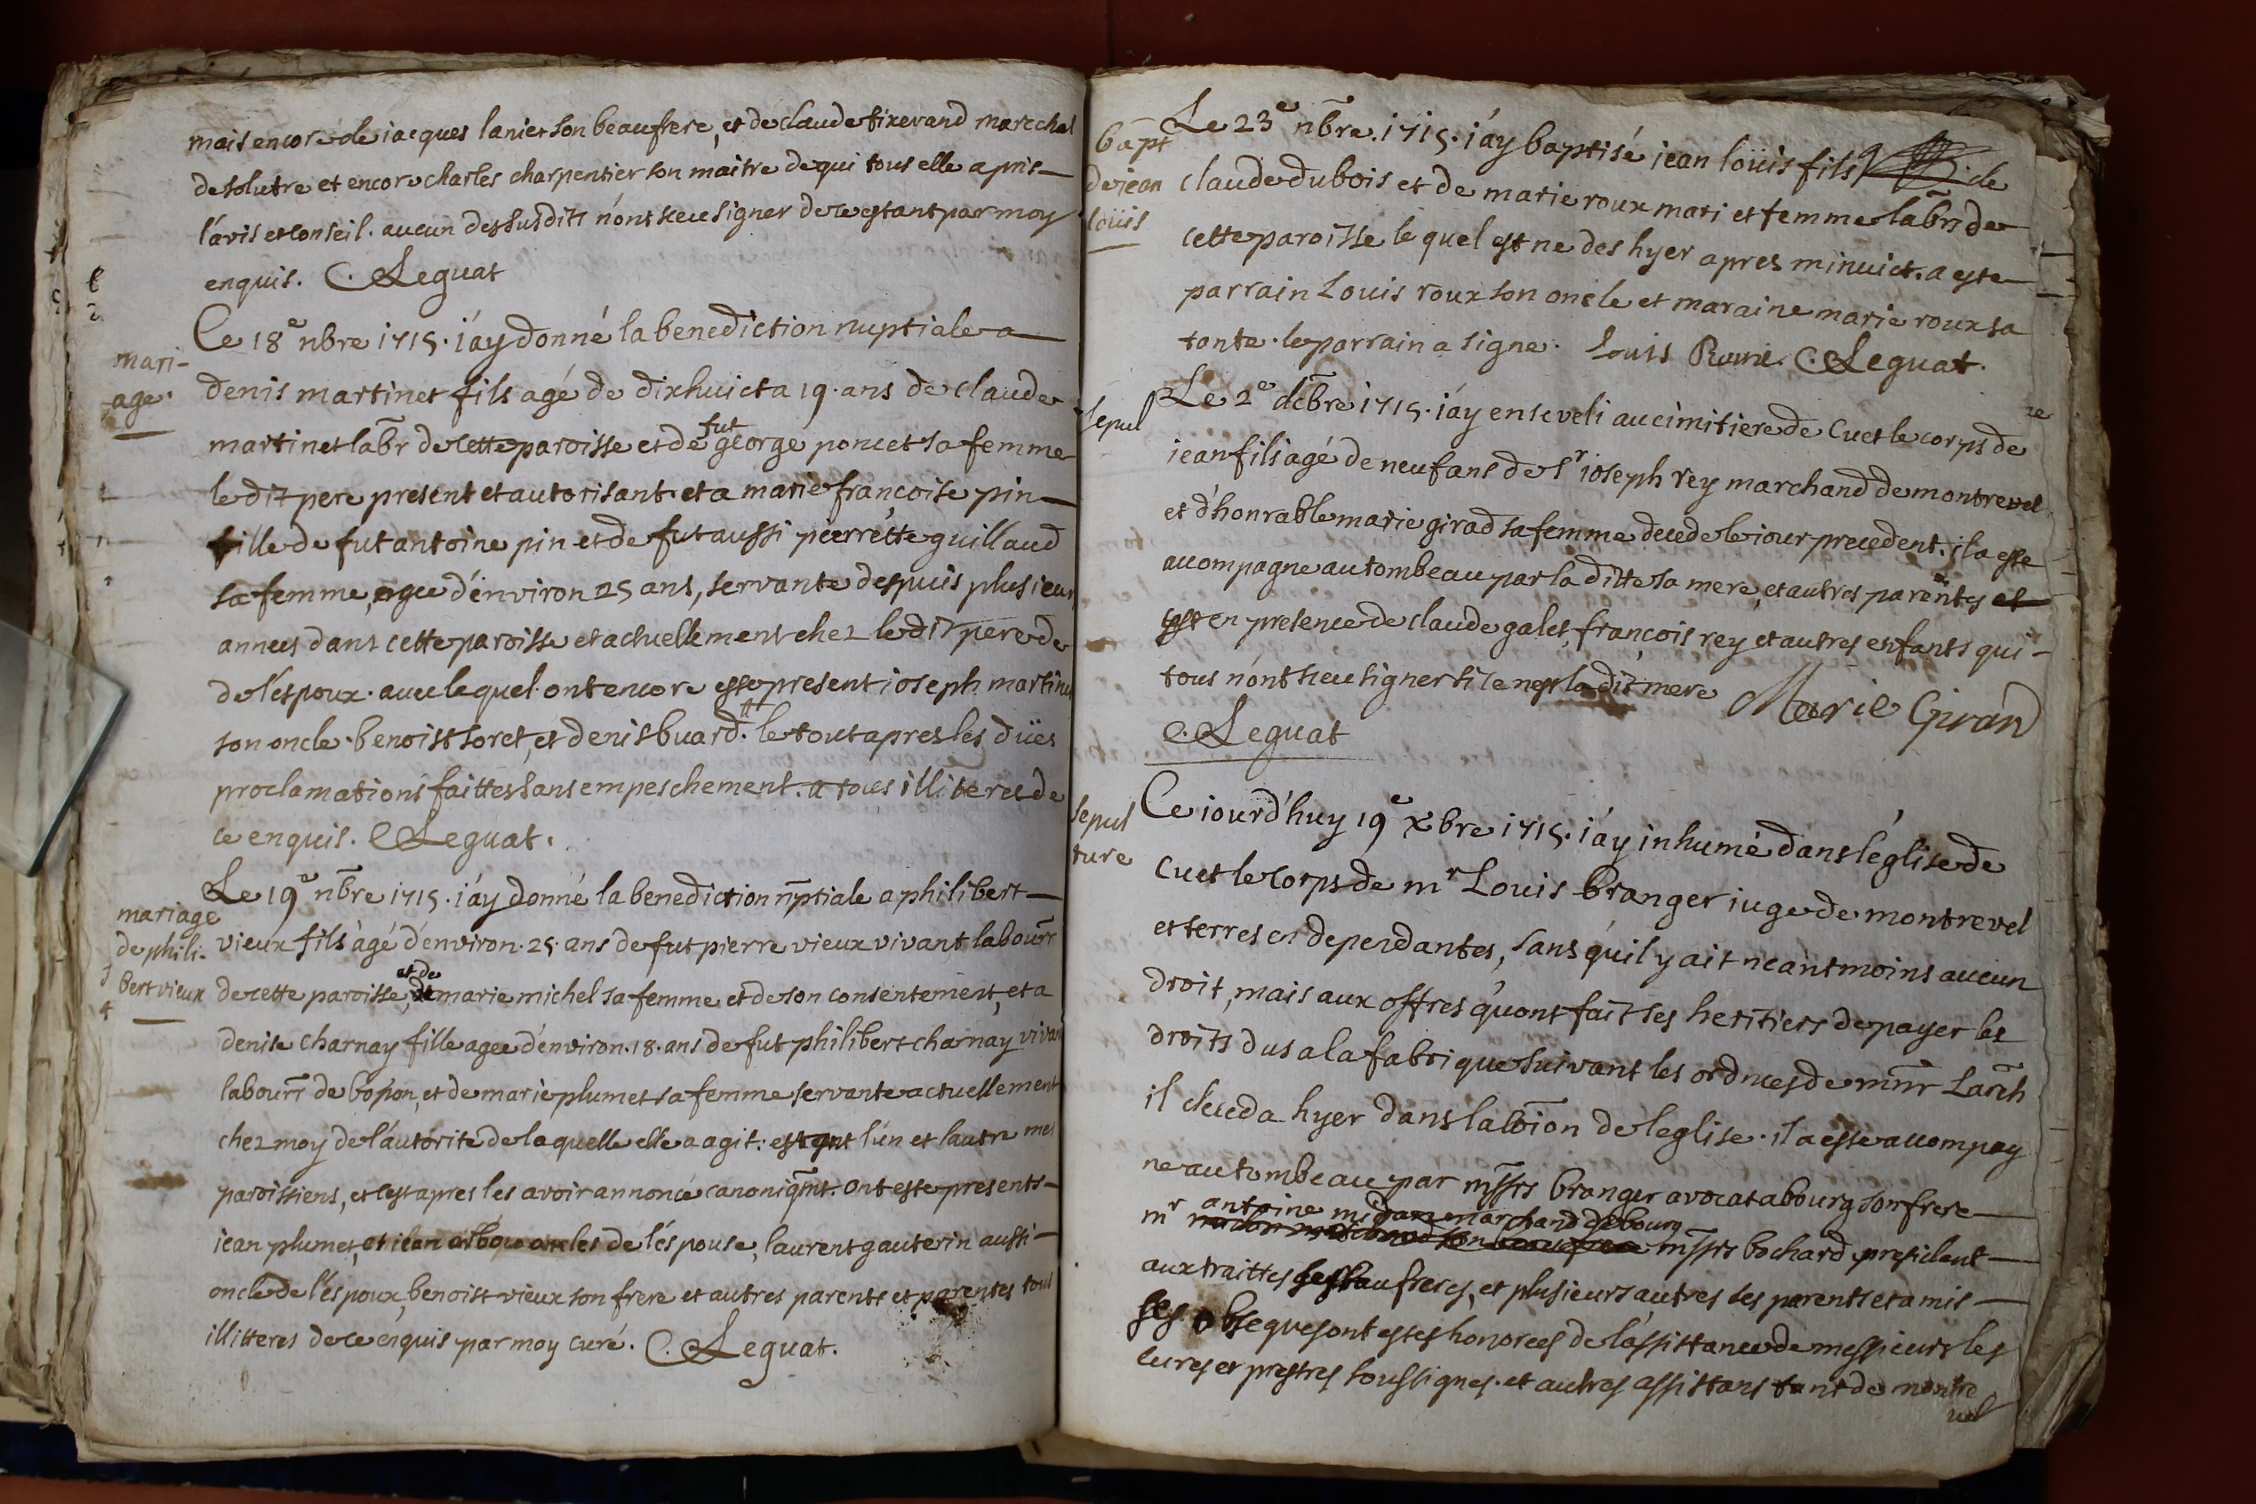 mais encore de iacques lanier son beaufrere, et de claude tixerand marechal
de solutre et encore charles charpentier son maitre de qui tous elle a pris
l'avis et conseil. aucun des susdits n'ont sceu signer de ce estant par moy
enquis. C. Leguat
mari-
age.
Ce 18e nbre 1715. i'ay donné la benediction nuptiale a
denis martinet fils agé de dixhuict a 19. ans de claude
martinet labr de cette paroisse et de fut george poncet sa femme
le dit pere present et autorisant. et a marie francoise pin
fille de fut antoine pin et de fut aussi pierrette guillaud
sa femme, agee d'environ 25 ans, servante despuis plusieurs
annees dans cette paroisse et actuellement chez le dit pere de
de l'espoux. avec lequel ont encore esté present ioseph martinet
son oncle. benoist soret, et denis buard. le tout apres les dües
proclamations faittes sans empeschement. a tous illiteres de
ce enquis. C Leguat.
mariage
de phili-
bert vieux
Le 19e nbre 1715. i'ay donné la benediction nptiale a philibert
vieux fils agé d'environ. 25. ans de fut pierre vieux vivant labourr
de cette paroisse, et de marie michel sa femme et de son consentement, et a
denise charnay fille agee d'environ. 18. ans de fut philibert charnay, vivant
labourr de bopon, et de marie plumet sa femme servante actuellement
chez moy de l'autorite de laquelle elle a agit: estant l'un et lautre mes
paroissiens, et c'est apres les avoir annoncé canoniqmt. ont este presents
iean plumet, et iean oncles de l'espouse, laurent gauterin aussi
oncle de l'espoux, benoist vieux son frere et autres parents et parentes tous
illitteres de ce enquis par moy curé. C. Leguat.
bapt
de iean
loüis
Le 23e nbre. 1715. i'ay baptisé iean loüis fils de
claude dubois et de marie roux mari et femme labrs de
cette paroisse lequel est ne des hyer apres minuict. a este
parrain Louis roux son oncle et maraine marie roux sa
tante. le parrain a signe. Louis Roux. C. Leguat.
sepul
Le 2e dcbre 1715. i'ay enseveli au cimitiere de Cuet le corps de
iean fils agé de neuf ans de sr ioseph rey marchand de montrevel
et d'honrable marie girad sa femme decede le iour precedent. il a este
accompagne au tombeau par la ditte sa mere, et autres parentes et
c'est en presence de claude galet, françois rey et autres enfants qui
tous n'ont sceu signer si ce nest la dit mere Marie Giran
C. Leguat
sepul
ture
Ce iourd'huy 19e xbre 1715. i'ay inhumé dans l'église de
Cuet le corps de mr Louis branger iuge de montrevel
et terres en dependantes, sans qu'il y ait neantmoins aucun
droit, mais aux offres qu'ont fait ses heritiers de payer les
droits dus a la fabrique suivant les ordnces de mnr Larch
il deceda hyer dans la coion de leglise. il a este accompag
ne au tombeau par mssrs branger avocat a bourg son frere
mr antoine midan marchand de bourg mssrs bochard president
aux traittes ses beaufreres, et plusieurs autres ses parents et amis
ses obseques ont estes honorees de l'assistance de messieurs les
cures et prestres soussignes. et autres assistans tant de montre
vel